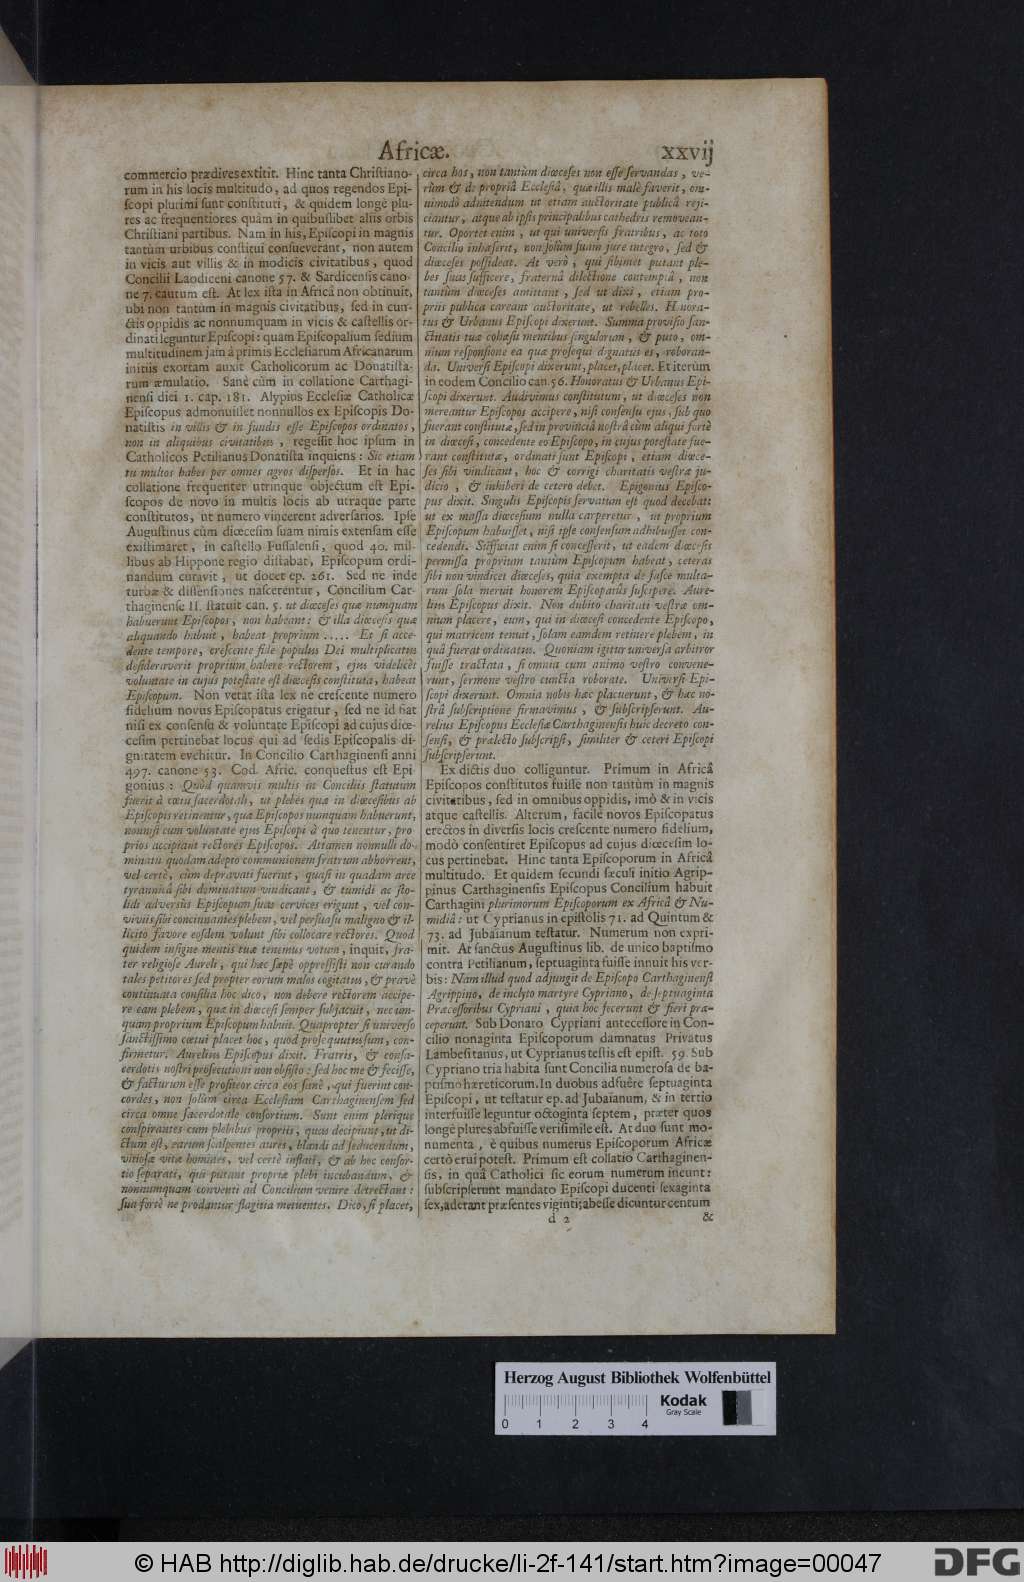 Africæ. xxvij
commercio prædives extitit. Hinc tanta Chriſtiano-
rum in his locis multitudo, ad quos regendos Epi-
ſcopi plurimi ſunt conſtituti, & quidem longè plu-
res ac frequentiores quàm in quibuſlibet aliis orbis
Chriſtiani partibus. Nam in his, Epiſcopi in magnis
tantùm urbibus conſtitui conſueverant, non autem
in vicis aut villis & in modicis civitatibus, quod
Concilii Laodiceni canone 57. & Sardicenſis cano-
ne 7. cautum eſt. At lex iſta in Africâ non obtinuit,
ubi non tantum in magnis civitatibus, ſed in cun-
ctis oppidis ac nonnumquam in vicis & caſtellis or-
dinati leguntur Epiſcopi: quam Epiſcopalium ſedium
multitudinem jam à primis Eccleſiarum Africanarum
initiis exortam auxit Catholicorum ac Donatiſta-
rum æmulatio. Sanè cùm in collatione Carthagi-
nenſi diei 1. cap. 181. Alypius Eccleſiæ Catholicæ
Epiſcopus admonuiſſet nonnullos ex Epiſcopis Do-
natiſtis in villis & in fundis eſſe Epiſcopos ordinatos,
non in aliquibus civitatibus, regeſſit hoc ipſum in
Catholicos Petilianus Donatiſta inquiens: Sic etiam
tu multos habes per omnes agros diſperſos. Et in hac
collatione frequenter utrinque objectum eſt Epi-
ſcopos de novo in multis locis ab utraque parte
conſtitutos, ut numero vincerent adverſarios. Ipſe
Auguſtinus cùm diœceſim ſuam nimis extenſam eſſe
exiſtimaret, in caſtello Fuſſalenſi, quod 40. mil-
libus ab Hippone regio diſtabat, Epiſcopum ordi-
nandum curavit, ut docet ep. 261. Sed ne inde
turbæ & diſſenſiones naſcerentur, Concilium Car-
thaginenſe II. ſtatuit can. 5. ut diœceſes quæ numquam
habuerunt Epiſcopos, non habeant: & illa diœceſis quæ
aliquando habuit, habeat proprium ..... Et ſi acce-
dente tempore, creſcente fide populus Dei multiplicatus
deſideraverit proprium habere rectorem, ejus videlicèt
voluntate in cujus poteſtate eſt diœceſis conſtituta, habeat
Epiſcopum. Non vetat iſta lex ne creſcente numero
fidelium novus Epiſcopatus erigatur, ſed ne id fiat
niſi ex conſenſu & voluntate Epiſcopi ad cujus diœ-
ceſim pertinebat locus qui ad ſedis Epiſcopalis di-
gnitatem evehitur. In Concilio Carthaginenſi anni
497. canone 53. Cod. Afric. conqueſtus eſt Epi
gonius: Quòd quamvis multis in Conciliis ſtatutum
fuerit à cœtu ſacerdotali, ut plebes quæ in diœceſibus ab
Epiſcopis retinentur, quæ Epiſcopos numquam habuerunt,
nonniſi cum voluntate ejus Epiſcopi à quo tenentur, pro
prios accipiant rectores Epiſcopos. Attamen nonnulli do-
minatu quodam adepto communionem fratrum abhorrent,
vel certè, cùm depravati fuerint, quaſi in quadam arce
tyrannicâ ſibi dominatum vindicant, & tumidi ac ſto-
lidi adverſùs Epiſcopum ſuas cervices erigunt, vel con-
viviis ſibi concinnantes plebem, vel perſuaſu maligno & il-
licito favore eoſdem volunt ſibi collocare rectores. Quod
quidem inſigne mentis tuæ tenemus votum, inquit, fra-
ter religioſe Aureli, qui hæc ſæpè oppreſſiſti non curando
tales petitores ſed propter eorum malos cogitatus, & pravè
continuata conſilia hoc dico, non debere rectorem accipe-
re eam plebem, quæ in diœceſi ſemper ſubjacuit, nec um-
quam proprium Epiſcopum habuit. Quapropter ſi univerſo
ſanctiſſimo cœtui placet hoc, quod proſequutus ſum, con-
firmetur. Aurelius Epiſcopus dixit. Fratris, & conſa-
cerdotis noſtri proſecutioni non obſiſto: ſed hoc me & feciſſe,
& facturum eſſe profiteor circa eos ſanè, qui fuerint con-
cordes, non ſolùm circa Eccleſiam Carthaginenſem ſed
circa omne ſacerdotale conſortium. Sunt enim plerique
conſpirantes cum plebibus propriis, quas decipiunt, ut di-
ctum eſt, earum ſcalpentes aures, blandi ad ſeducendum,
vitioſæ vitæ homines, vel certè inflati, & ab hoc conſor-
tio ſeparati, qui putant propriæ plebi incubandum, &
nonnumquam conventi ad Concilium venire detrectant:
ſua fortè ne prodantur flagitia metuentes. Dico, ſi placet,
circa hos, non tantùm diœceſes non eſſe ſervandas, ve-
rùm & de propriâ Eccleſiâ, quæ illis malè faverit, om-
nimodò adnitendum ut etiam auctoritate publicâ reji-
ciantur, atque ab ipſis principalibus cathedris removean-
tur. Oportet enim, ut qui univerſis fratribus, ac toto
Concilio inhæſerit, non ſolùm ſuam jure integro, ſed &
diœceſes poſſideat. At verò, qui ſibimet putant ple-
bes ſuas ſufficere, fraternâ dilectione contemptâ, non
tantùm diœceſes amittant, ſed ut dixi, etiam pro-
priis publica careant auctoritate, ut rebelles. Honora-
tus & Urbanus Epiſcopi dixerunt. Summa proviſio ſan-
ctitatis tuæ cohæſit mentibus ſingulorum, & puto, om-
nium reſponſione ea quæ proſequi dignatus es, roboran-
da. Univerſi Epiſcopi dixerunt, placet, placet. Et iterùm
in eodem Concilio can. 56. Honoratus & Urbanus Epi-
ſcopi dixerunt. Audivimus conſtitutum, ut diœceſes non
mereantur Epiſcopos accipere, niſi conſenſu ejus, ſub quo
fuerant conſtitutæ, ſed in provinciâ noſtrâ cùm aliqui fortè
in diœceſi, concedente eo Epiſcopo, in cujus poteſtate fue-
rant conſtitutæ, ordinati ſunt Epiſcopi, etiam diœce-
ſes ſibi vindicant, hoc & corrigi charitatis veſtræ ju-
dicio, & inhiberi de cetero debet. Epigonius Epiſco-
pus dixit. Singulis Epiſcopis ſervatum eſt quod decebat:
ut ex maſſa diœceſium nulla carperetur, ut proprium
Epiſcopum habuiſſet, niſi ipſe conſenſum adhibuiſſet con-
cedendi. Sufficiat enim ſi conceſſerit, ut eadem diœceſis
permiſſa proprium tantùm Epiſcopum habeat, ceteras
ſibi non vindicet diœceſes, quia exempta de faſce multa-
rum ſola meruit honorem Epiſcopatûs ſuſcipere. Aure-
lius Epiſcopus dixit. Non dubito charitati veſtræ om-
nium placere, eum, qui in diœceſi concedente Epiſcopo,
qui matricem tenuit, ſolam eamdem retinere plebem, in
quâ fuerat ordinatus. Quoniam igitur univerſa arbitror
fuiſſe tractata, ſi omnia cum animo veſtro convene-
runt, ſermone veſtro cuncta roborate. Univerſi Epi-
ſcopi dixerunt. Omnia nobis hæc placuerunt, & hæc no-
ſtrâ ſubſcriptione firmavimus, & ſubſcripſerunt. Au-
relius Epiſcopus Eccleſiæ Carthaginenſis huic decreto con-
ſenſi, & prælecto ſubſcripſi, ſimiliter & ceteri Epiſcopi
ſubſcripſerunt.
Ex dictis duo colliguntur. Primum in Africâ
Epiſcopos conſtitutos fuiſſe non tantùm in magnis
civitatibus, ſed in omnibus oppidis, imò & in vicis
atque caſtellis. Alterum, facile novos Epiſcopatus
erectos in diverſis locis creſcente numero fidelium,
modò conſentiret Epiſcopus ad cujus diœceſim lo-
cus pertinebat. Hinc tanta Epiſcoporum in Africâ
multitudo. Et quidem ſecundi ſæculi initio Agrip-
pinus Carthaginenſis Epiſcopus Concilium habuit
Carthagini plurimorum Epiſcoporum ex Africâ & Nu-
midiâ: ut Cyprianus in epiſtolis 71. ad Quintum &
73. ad Jubaianum teſtatur. Numerum non expri-
mit. At ſanctus Auguſtinus lib. de unico baptiſmo
contra Petilianum, ſeptuaginta fuiſſe innuit his ver-
bis: Nam illud quod adjungit de Epiſcopo Carthaginenſi
Agrippino, de inclyto martyre Cypriano, de ſeptuaginta
Præceſſoribus Cypriani, quia hoc fecerunt & fieri præ-
ceperunt. Sub Donato Cypriani anteceſſore in Con-
cilio nonaginta Epiſcoporum damnatus Privatus
Lambeſitanus, ut Cyprianus teſtis eſt epiſt. 59. Sub
Cypriano tria habita ſunt Concilia numeroſa de ba-
ptiſmo hæreticorum. In duobus adfuêre ſeptuaginta
Epiſcopi, ut teſtatur ep. ad Jubaianum, & in tertio
interfuiſſe leguntur octoginta ſeptem, præter quos
longè plures abfuiſſe veriſimile eſt. At duo ſunt mo-
numenta, è quibus numerus Epiſcoporum Africæ
certò erui poteſt. Primum eſt collatio Carthaginen-
ſis, in quâ Catholici ſic eorum numerum ineunt:
ſubſcripſerunt mandato Epiſcopi ducenti ſexaginta
ſex, aderant præſentes viginti; abeſſe dicuntur centum
d 2 &
Herzog August Bibliothek Wolfenbüttel
0 1 2 3 4
Kodak
Gray Scale
© HAB http://diglib.hab.de/drucke/li-2f-141/start.htm?image=00047
DFG